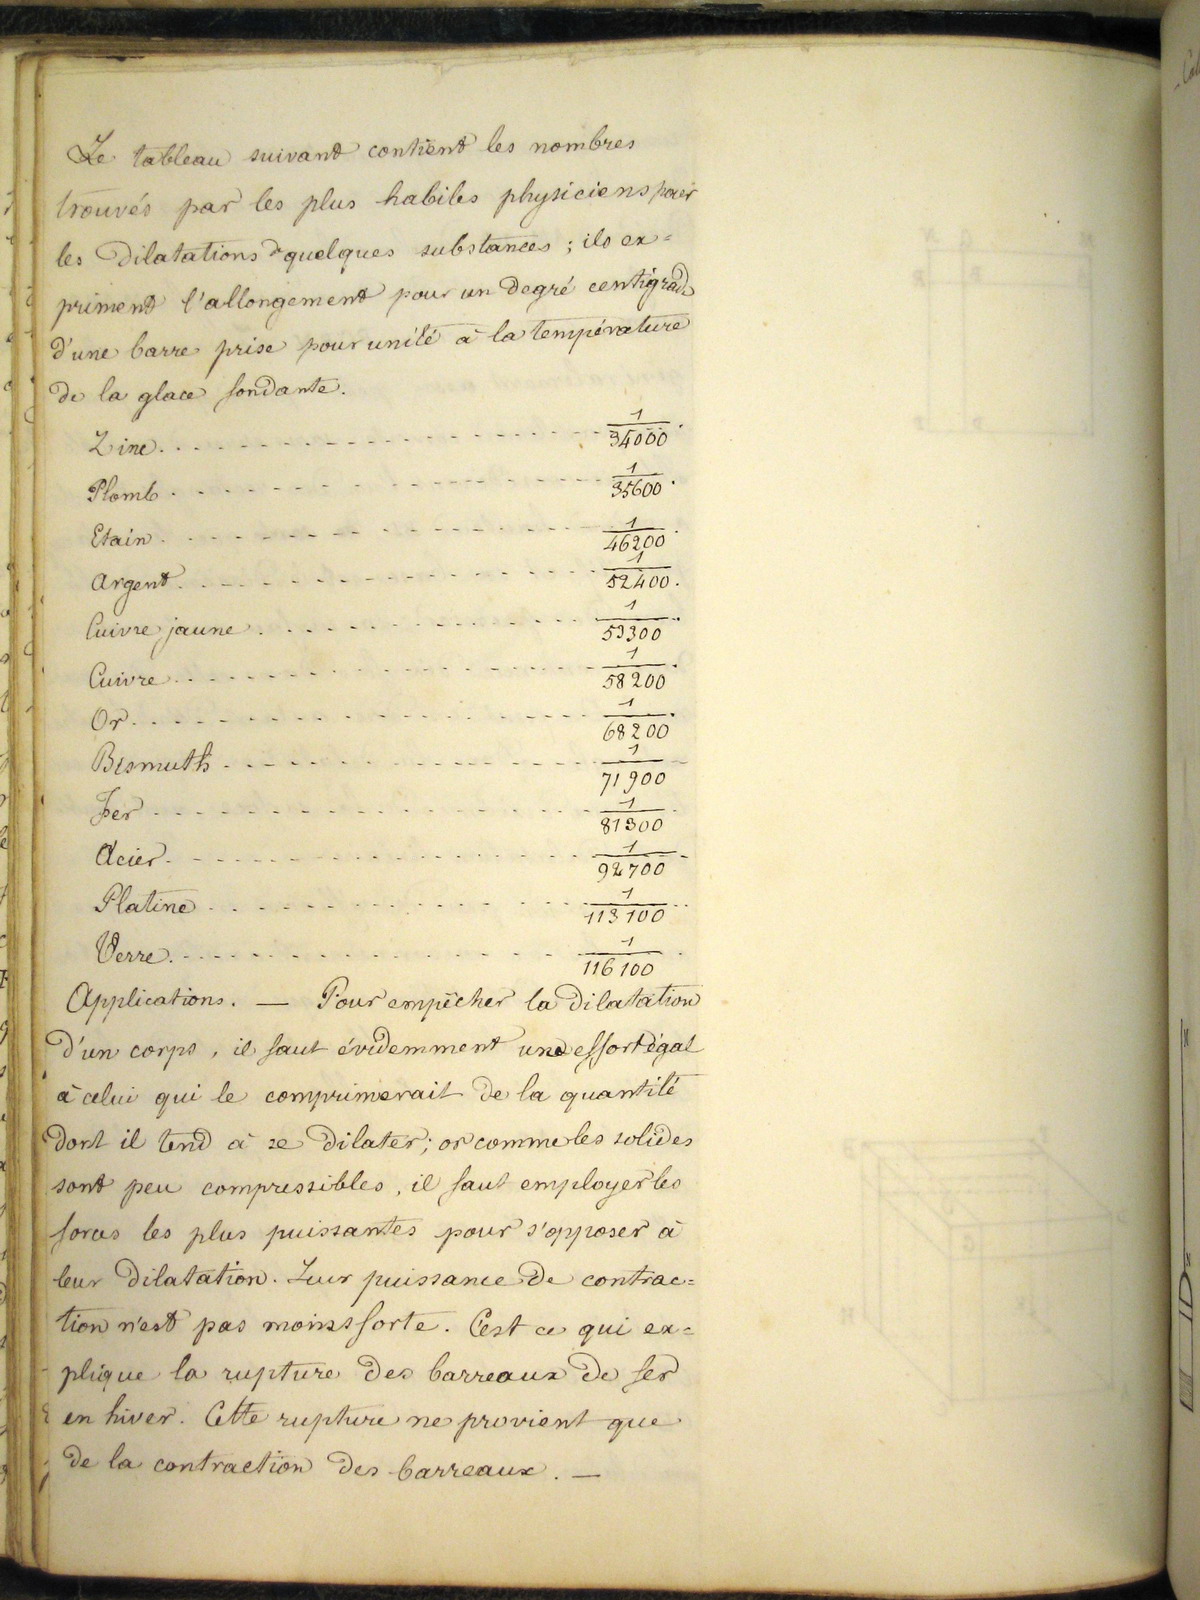 Le tableau suivant contient les nombres
trouvés par les plus habiles physiciens pour
les dilatations de quelques substances ; ils ex=
priment l'allongement pour un degré centigrade
d'une barre prise pour unité à la température
de la glace fondante.
Zinc. 1/34000.
Plomb. 1/35600.
Etain. 1/46200.
Argent. 1/52400.
Cuivre jaune. 1/53300.
Cuivre. 1/58200.
Or. 1/68200.
Bismuth. 1/71900
Fer. 1/81300.
Acier. 1/92700
Platine. 1/113100.
Verre. 1/116100.
Applications. — Pour empêcher la dilatation
d'un corps, il faut évidemment un effort égal
à celui qui le comprimerait de la quantité
dont il tend à se dilater; or comme les solides
sont peu compressibles, il faut employer les
forces les plus puissantes pour s'opposer à
leur dilatation. Leur puissance de contrac=
tion n'est pas moins forte. C'est ce qui ex=
plique la rupture des barreaux de fer
en hiver. Cette rupture ne provient que
de la contraction des barreaux. —